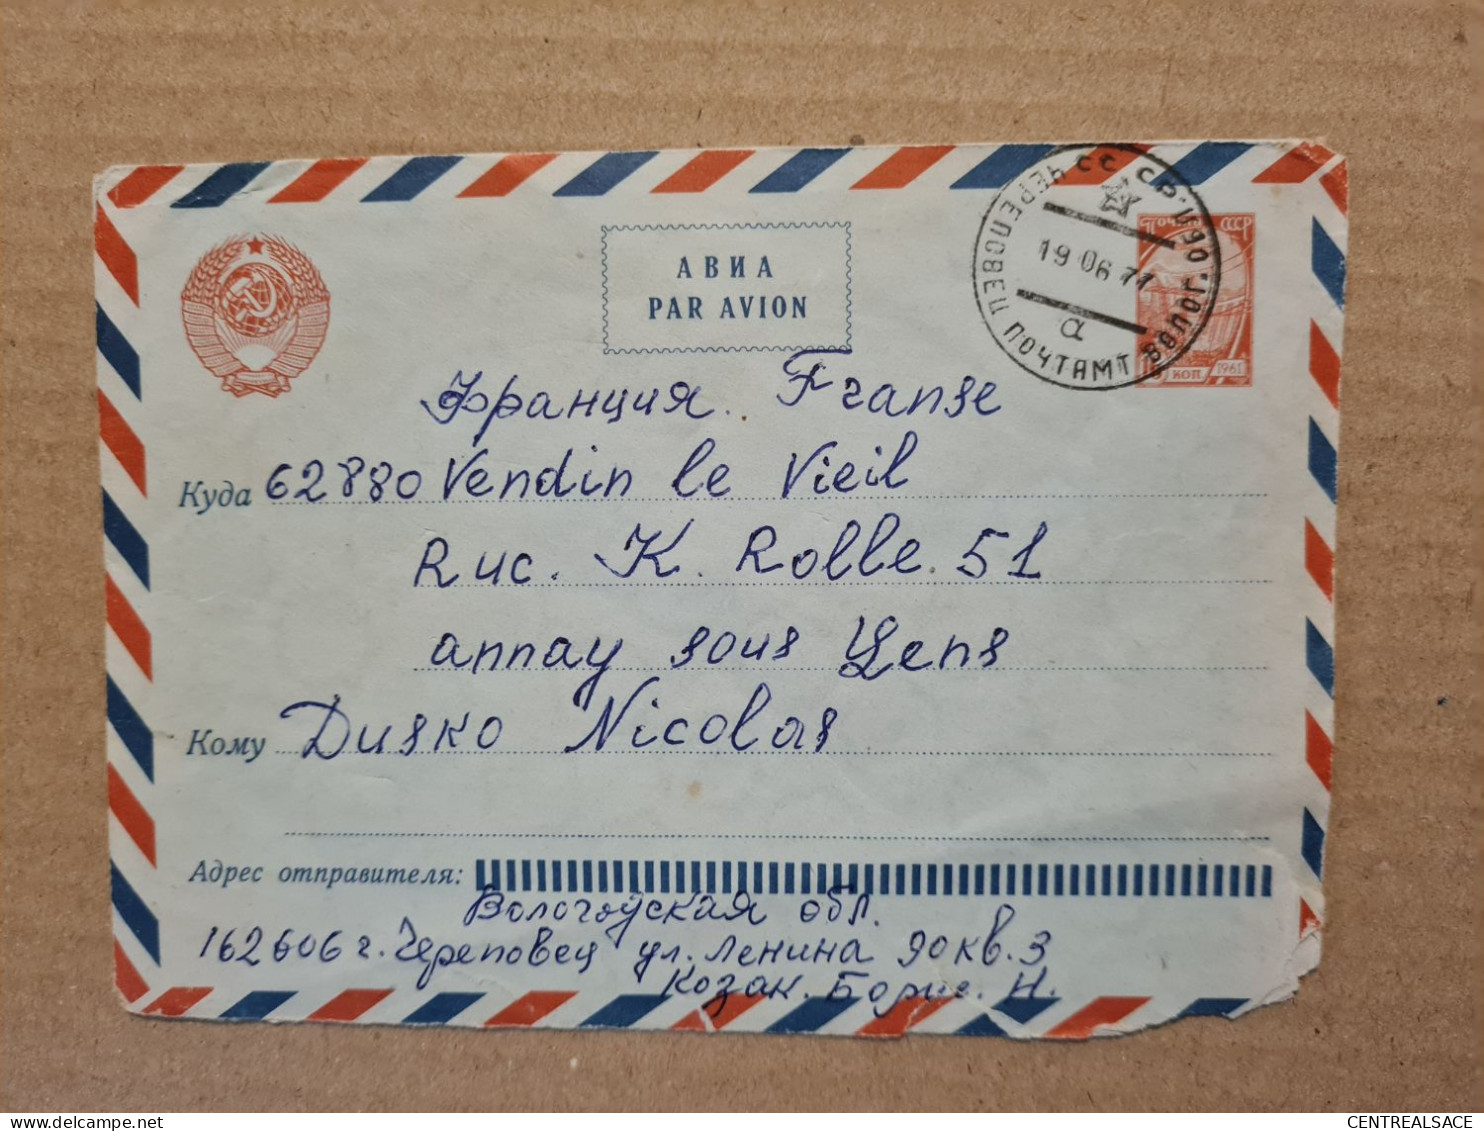 АВИА
PAR AVION
СССР
ЧЕРЕПОВЕЦ ПОЧТАМТ ВОЛОГ. ОБЛ.
19 06 77
а
ПОЧТА СССР
КОП 1961
Франция. Franse
Куда 62880 Vendin le Vieil
Ruc. K. Rolle. 51
annay sous Lens
Кому Dusko Nicolas
Адрес отправителя:
Вологодская обл.
162606 г. Череповец ул. Ленина 90 кв. 3
Козак. Борис. Н.
CENTREALSACE